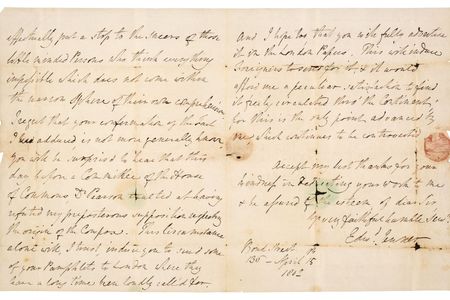 effectually put a stop to the sneers of those
little minded Persons who think everything
impossible which does not come within
the narrow Sphere of their own comprehension
I regret that your confirmation of the
I have adduced is not more generally known
you will be surprized to hear that this
day before a Committee of the House
of Commons Dr Pearson at having
refuted my preposterous supposition respecting
the origin of the Cowpox. This circumstance
alone will, I trust induce you to send some
of your Pamphlets to London where they
have a long time been loudly called for.
And I hope too that you will fully advertise
it in the London Papers. This will induce
Foreigners to send for it & it would
afford me a peculiar satisfaction to find
it freely circulated thro' the Continent;
for this is the only point advanced by
me which continues to be controverted.
Accept my best thanks for your
kindness in your work to me
& be assured of the esteem of dear Sir
Your very faithful humble Servt
Edwd Jenner
Bond Street
April 15
1802